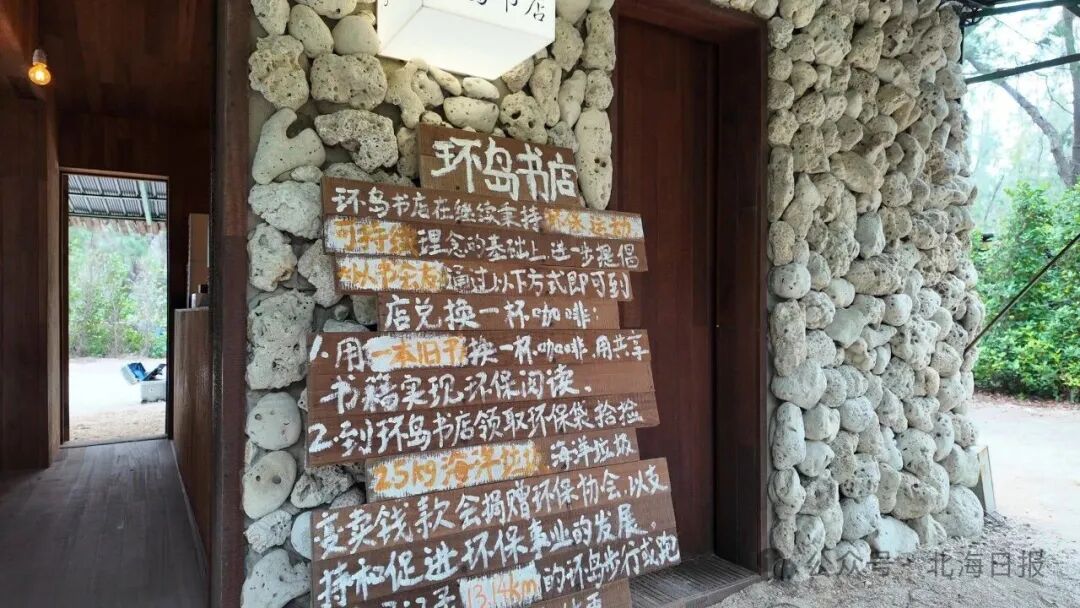 书店
环岛书店
环岛书店在继续秉持环保运动
可持续理念的基础上,进步提倡
以书会友,通过以下方式即可到
店兑换一杯咖啡:
1.用一本旧书换一杯咖啡,用共享
书籍实现环保阅读.
2.到环岛书店领取环保袋拾捡
2.5kg海洋垃圾海洋垃圾
变卖钱款会捐赠环保协会,以支
持和促进环保事业的发展.
13.14km的环岛步行或跑
公众号·北海日报